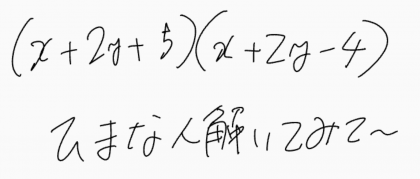 (x+2y+5)(x+2y-4)
ひまな人解いてみて～